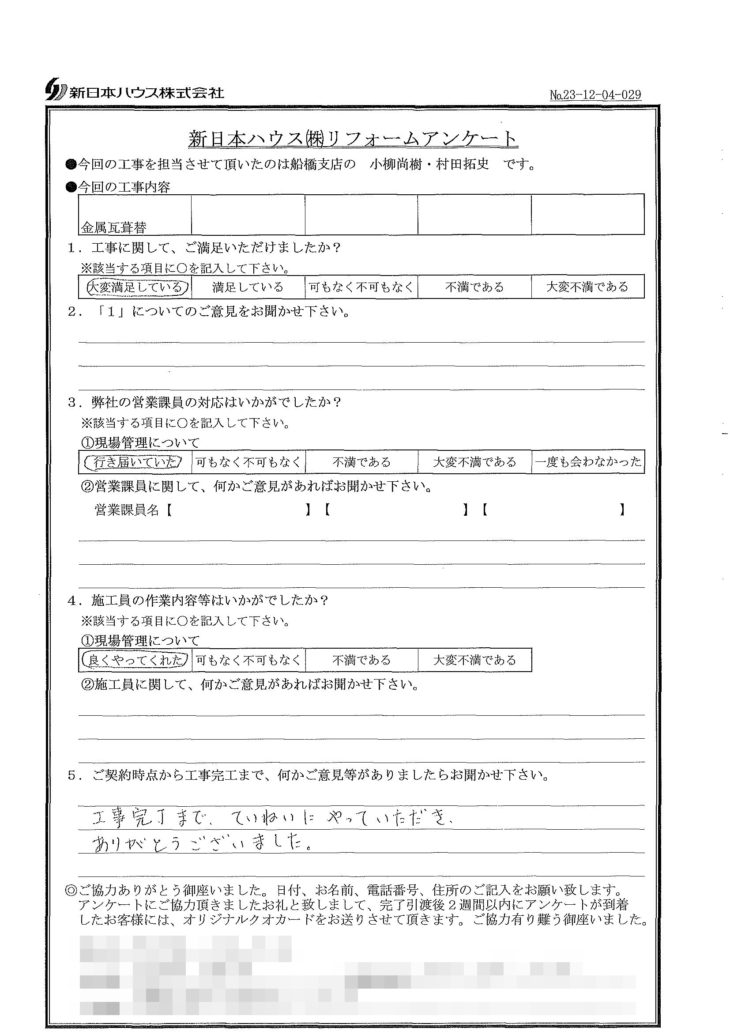 新日本ハウス株式会社
No.23-12-04-029
新日本ハウス㈱リフォームアンケート
●今回の工事を担当させて頂いたのは船橋支店の 小柳尚樹・村田拓史 です。
●今回の工事内容
金属瓦葺替
１．工事に関して、ご満足いただけましたか？
※該当する項目に〇を記入して下さい。
大変満足している 満足している 可もなく不可もなく 不満である 大変不満である
２．「１」についてのご意見をお聞かせ下さい。
３．弊社の営業課員の対応はいかがでしたか？
※該当する項目に〇を記入して下さい。
①現場管理について
行き届いていた 可もなく不可もなく 不満である 大変不満である 一度も会わなかった
②営業課員に関して、何かご意見があればお聞かせ下さい。
営業課員名【 】【 】【 】
４．施工員の作業内容等はいかがでしたか？
※該当する項目に〇を記入して下さい。
①現場管理について
良くやってくれた 可もなく不可もなく 不満である 大変不満である
②施工員に関して、何かご意見があればお聞かせ下さい。
５．ご契約時点から工事完工まで、何かご意見等がありましたらお聞かせ下さい。
工事完了まで、ていねいにやっていただき、
ありがとうございました。
◎ご協力ありがとう御座いました。日付、お名前、電話番号、住所のご記入をお願い致します。
アンケートにご協力頂きましたお礼と致しまして、完了引渡後２週間以内にアンケートが到着
したお客様には、オリジナルクオカードをお送りさせて頂きます。ご協力有り難う御座いました。